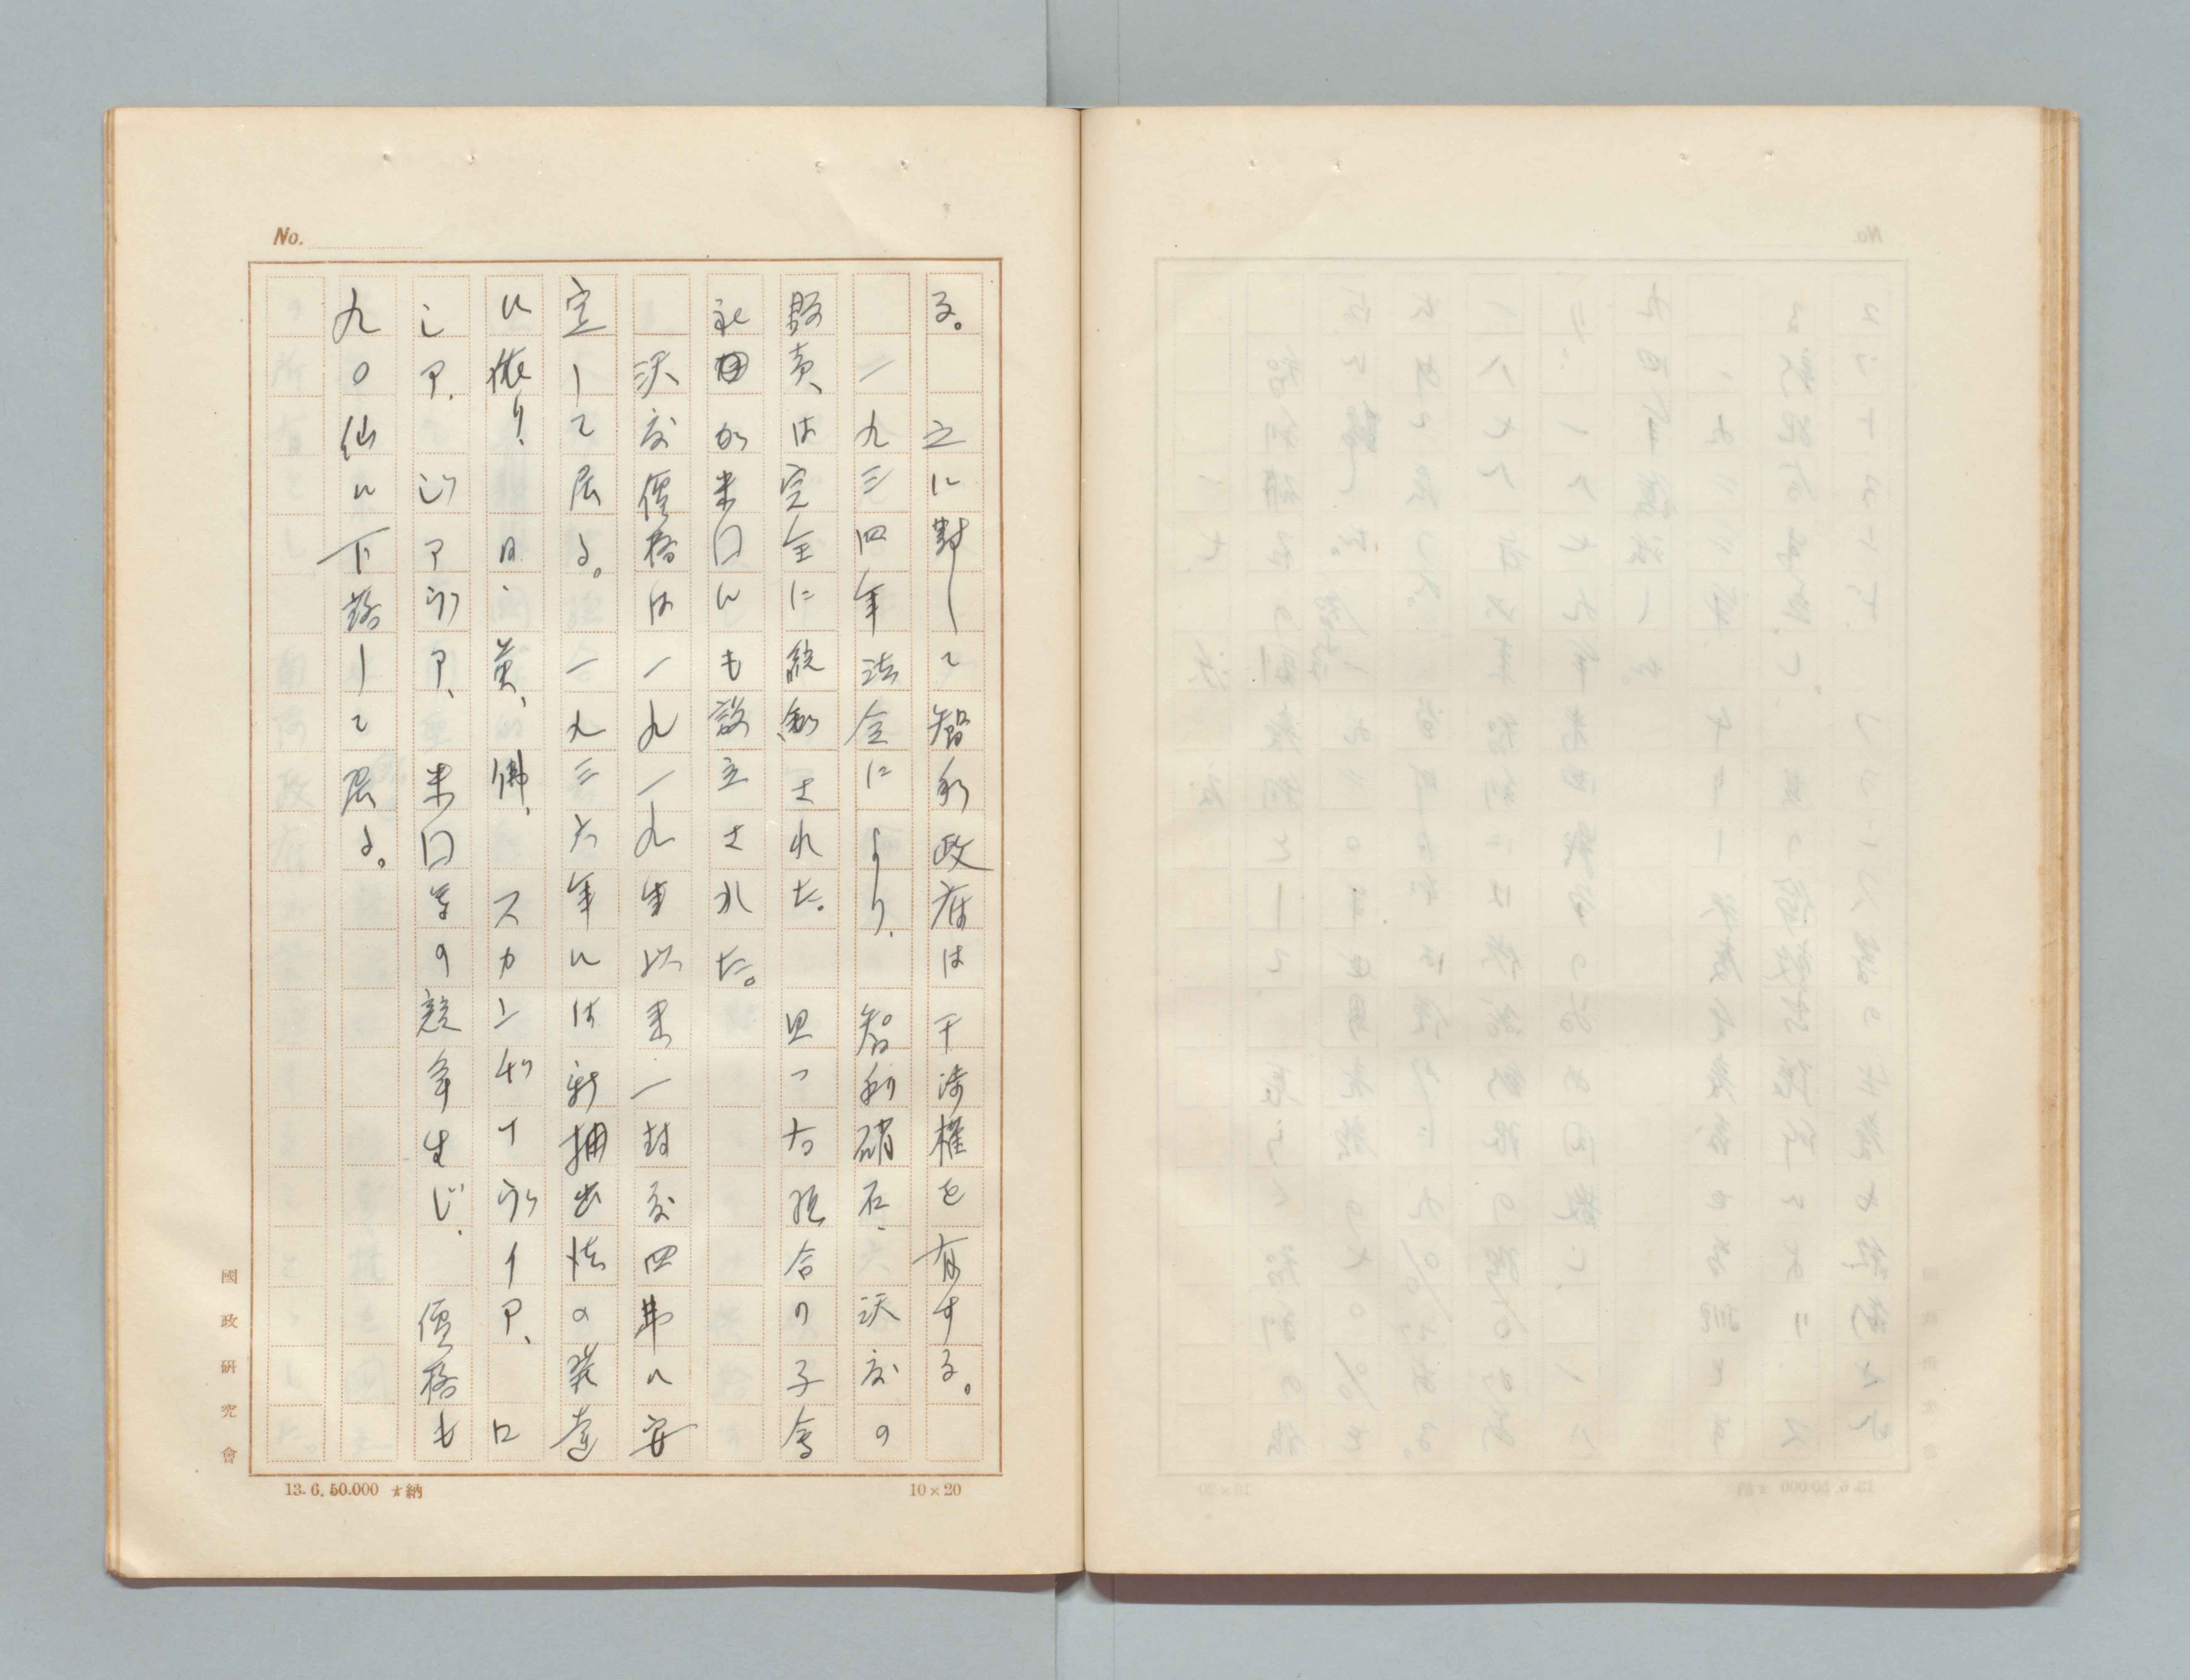 No.
る。　之に對して智利政府は干渉權を有する。
一九三四年法令により、　智利硝石、沃度の
販賣は完全に統制された。　且つ右組合の子會
社が米国にも設立された。
沃度價格は一九一九年以来一封度四弗に安
定して居る。一九三六年には新抽出法の発達
に依り、日、英、佛、スカンヂナヴィア、ロ
シア、ジアヴア、米国等の競争生じ、　價格も
九〇仙に下落して居る。
國政研究會
13. 6. 50.000 納
10×20